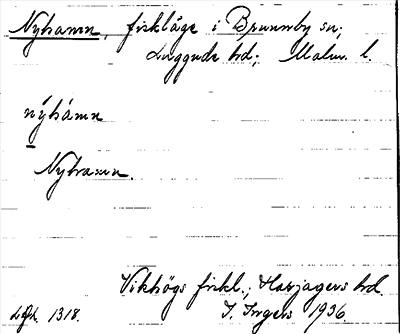 Nyhamn, fiskläge i Brunnby sn;
Luggude hd; Malm. l.
nýhámn
Nyhamn.
Vikhögs fiskl.; Harjagers hd.
Lgh. 1318. I. Ingers 1936.